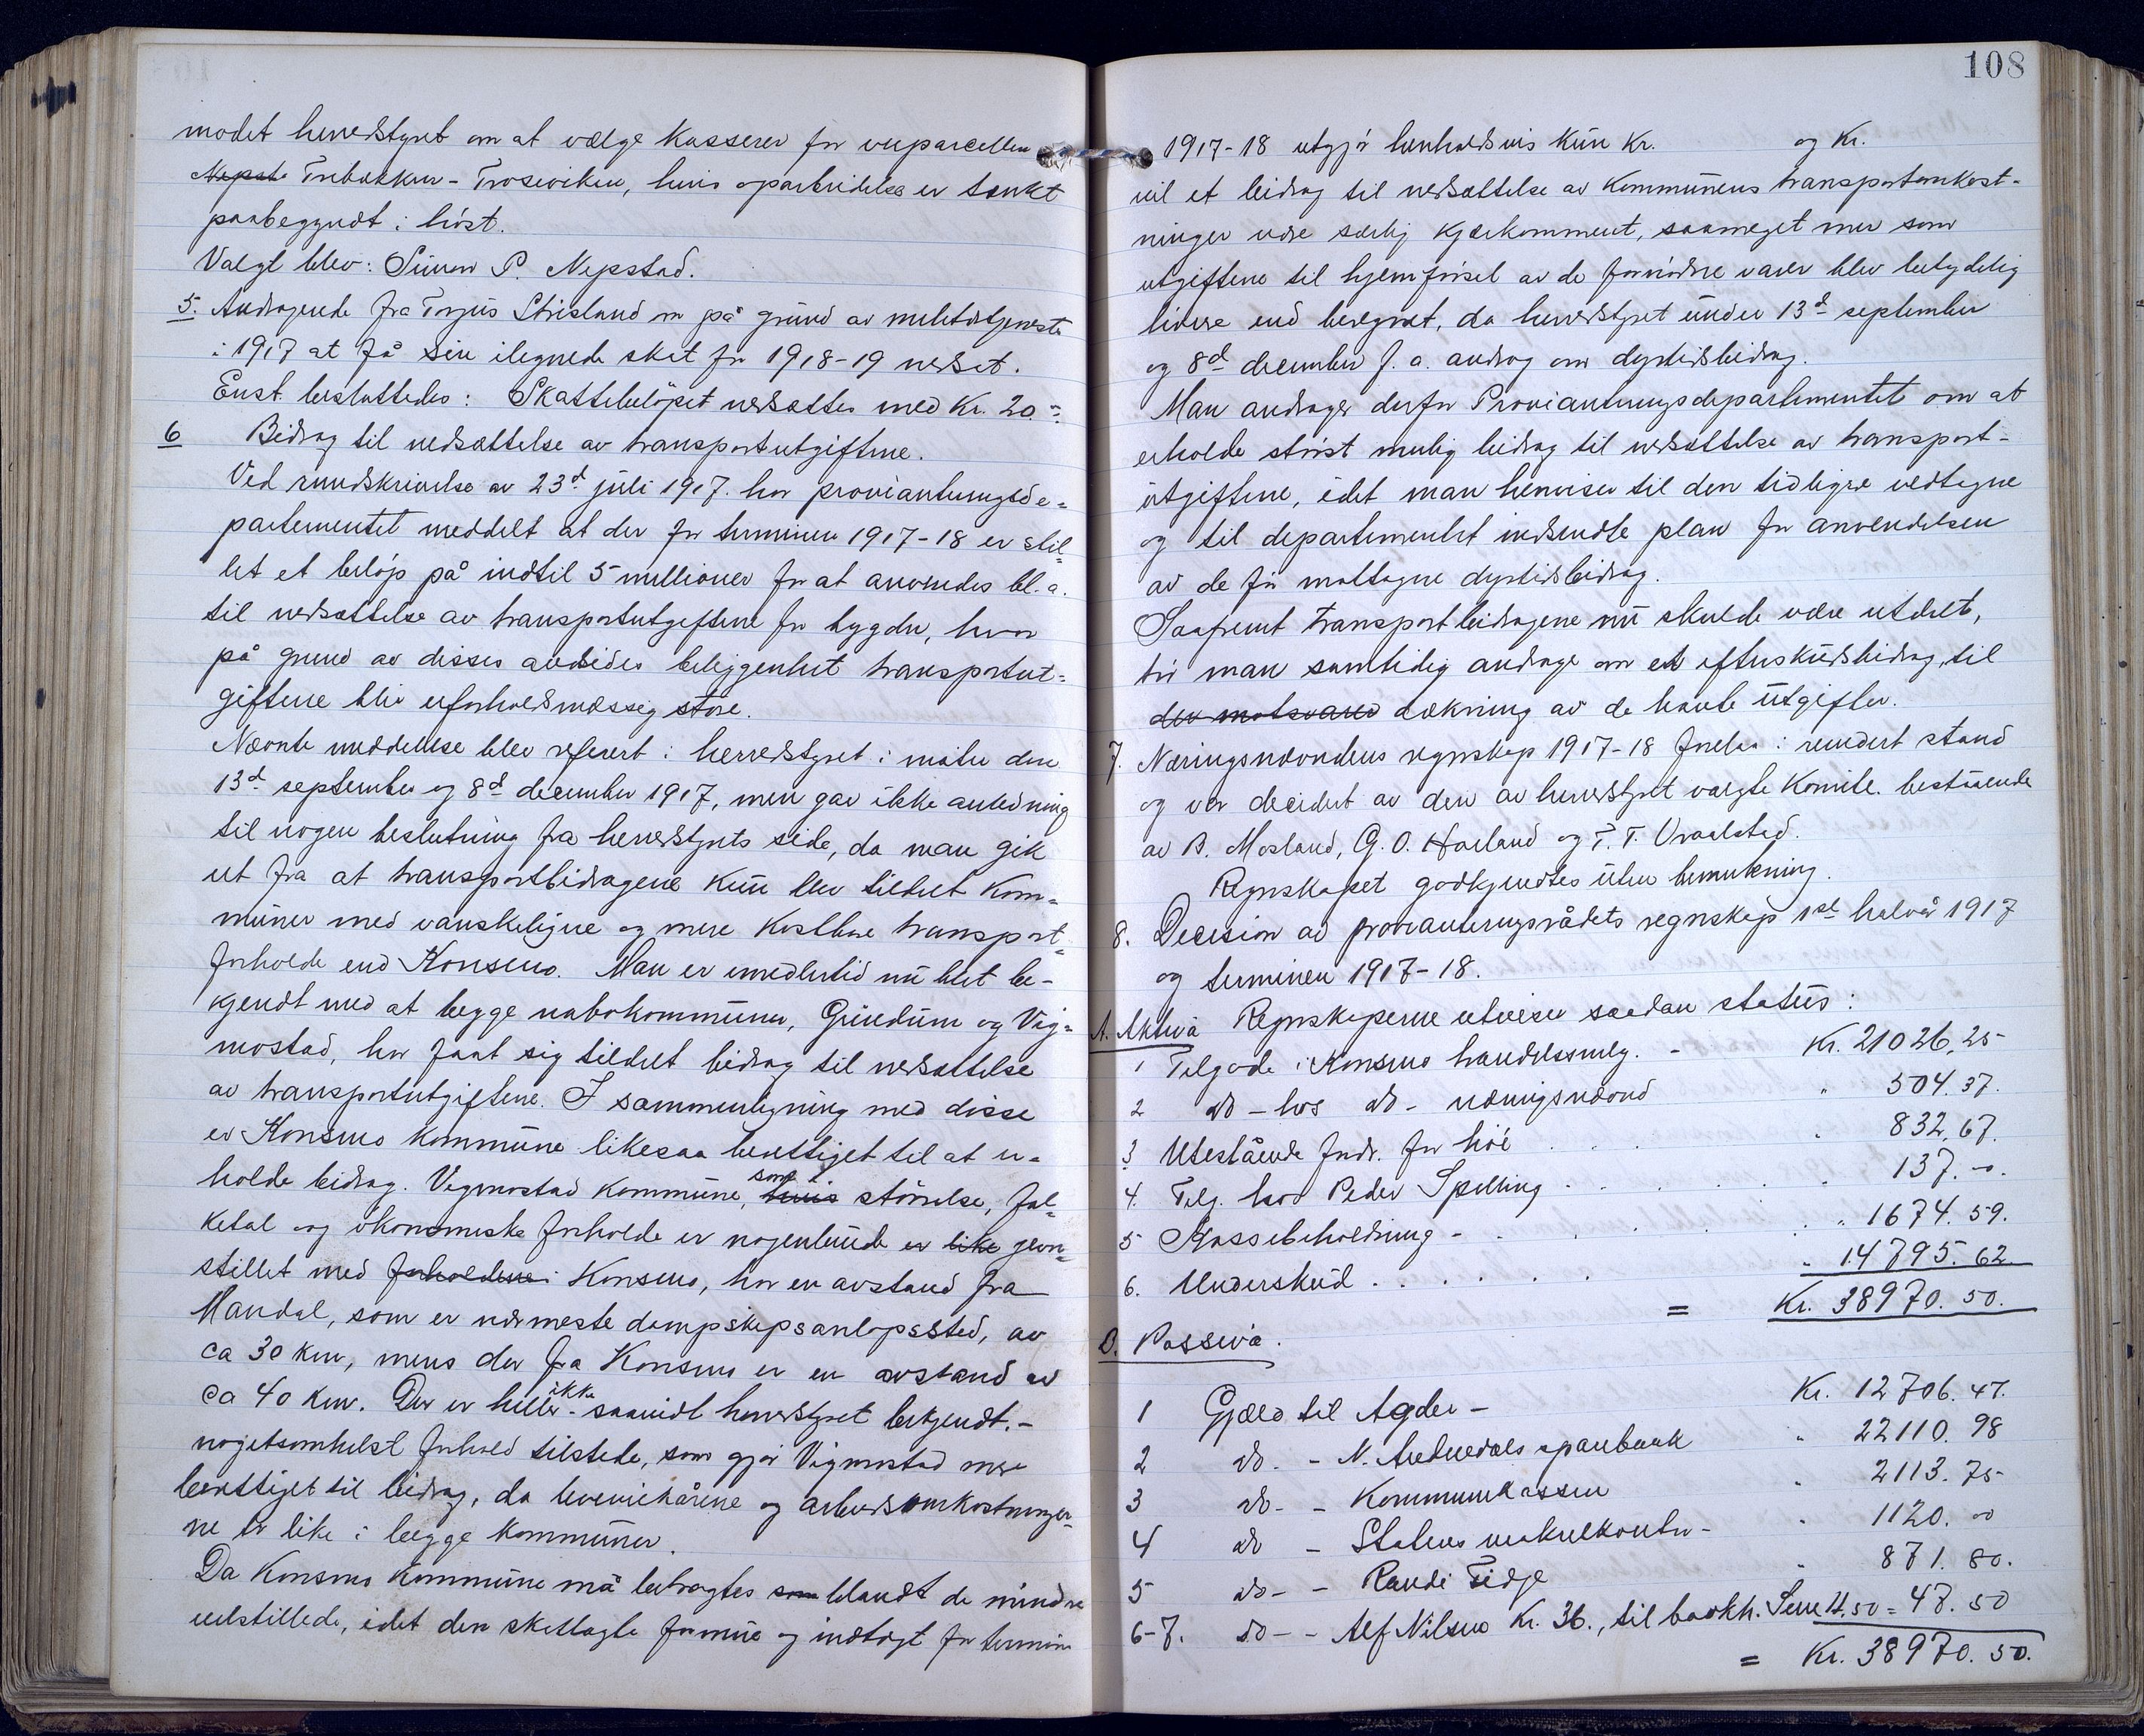 modet herredstyret om at vælge kasserer for veiparcellen
Nepsta Trebakken - Troseviken, hvis oparbeidelse er tænkt
paabegyndt i høst.
Valgt blev: Simon P. Nepstad.
5. Andragende fra Torjus Strisland om på grund av militærtjeneste
i 1917 at få sin ilegnede skat for 1918-19 nedsat.
Enst. besluttedes: Skattebeløpet nedsættes med Kr. 20.-
6 Bidrag til nedsættelse av transportutgiftene.
Ved rundskrivelse av 23d. juli 1917. har provianteringsde-
partementet meddelt at der for terminen 1917-18 er stil-
let et beløp på indtil 5 millioner for at anvendes bl. a.
til nedsættelse av transportutgiftene for bygder, hvor
på grund av disses avsides beliggenhet transportut-
giftene blir uforholdsmæssig store.
Nævnte meddelelse blev referert i herredstyret i møter den
13d september og 8d december 1917, men gav ikke anledning
til nogen beslutning fra herredstyrets side, da man gik
ut fra at transportbidragene kun blev tildelt kom-
muner med vanskeligere og mere kostbare transport-
forholde end Konsmo. Man er imidlertid nu blit be-
kjendt med at begge nabokommuner, Grindum og Vig-
mostad, har faat sig tildelt bidrag til nedsættelse
av transportutgiftene. I sammenligning med disse
er Konsmo kommune likesaa berettiget til at er-
holde bidrag. Vigmostad kommune, hvis som i størrelse, fol-
ketal og økonomiske forholde er nogenlunde er like jevn-
stillet med forholdene i Konsmo, har en avstand fra
Mandal, som er nærmeste dampskipsanløpssted, av
ca 30 km, mens der fra Konsmo er en avstand av
ca 40 km. Der er heller ikke - saavidt herredstyret bekjendt. -
nogetsomhelst forhold tilstede, som gjør Vigmostad mere
berettiget til bidrag, da leveviskårene og arbeidsomkostninger-
ne er like i begge kommuner.
Da Konsmo kommune må betragtes som blandt de mindre
velstillede, idet den skatlagte formue og indtægt for termin
108
1917-18 utgjør henholdsvis kun Kr. og Kr.
vil et bidrag til nedsættelse av kommunens transportomkost-
ninger være særlig kjærkomment, saameget mer som
utgiftene til hjemførsel av de fornødne varer blev betydelig
høiere end beregnet, da herredstyret under 13d september
og 8d december f. a. androg om dyrtidsbidrag.
Man andrager derfor Provianteringsdepartementet om at
erholde størst mulig bidrag til nedsættelse av transport-
utgiftene, idet man henviser til den tidligere vedtagne
og til departementet indsendte plan for anvendelsen
av de før mottagne dyrtidsbidrag.
Saafremt transportbidragene nu skulde være utdelt,
tør man samtidig andrage om et efterskudsbidrag, til
den motsvared dækning av de havte utgifter.
7. Næringsnævndens regnskap 1917-18 forelaa i revidert stand
og var decidert av den av herredstyret valgte komite. bestående
av B. Mosland, G. O. Haaland og T. T. Vraalstad.
Regnskapet godkjendtes uten bemerkning.
8. Decision av provianteringsrådets regnskap 1st halvår 1917
og terminen 1917-18.
Regnskaperne utviser saadan status:
A. Aktiva
1 Tilgode i Konsmo handelssmlg. - Kr. 21026,25
2 do - hos do - næringsnævnd " 504.37.
3 Utestående fordr. for høi . . . " 832,67.
4. Tilg. hos Peder Spilling . . . . " 137.00.
5 Kassebeholdning - . . . " 1674.59.
6. Underskud . . . . . . " 14795.62
= Kr. 38970.50.
B. Passiva.
1 Gjæld til Agder - Kr. 12706.47.
2 do. - N. Audnedals sparebank " 22110.98
3 do - - Kommunekassen " 2113.75
4 do - Statens maskinkontor - " 1120.00
5 do - - Randi Tidje " 871.80.
6-7. do - - Alf Nilsens Kr. 36., til bookh. Sene 11.50 = 47.50
= Kr. 38970.50.